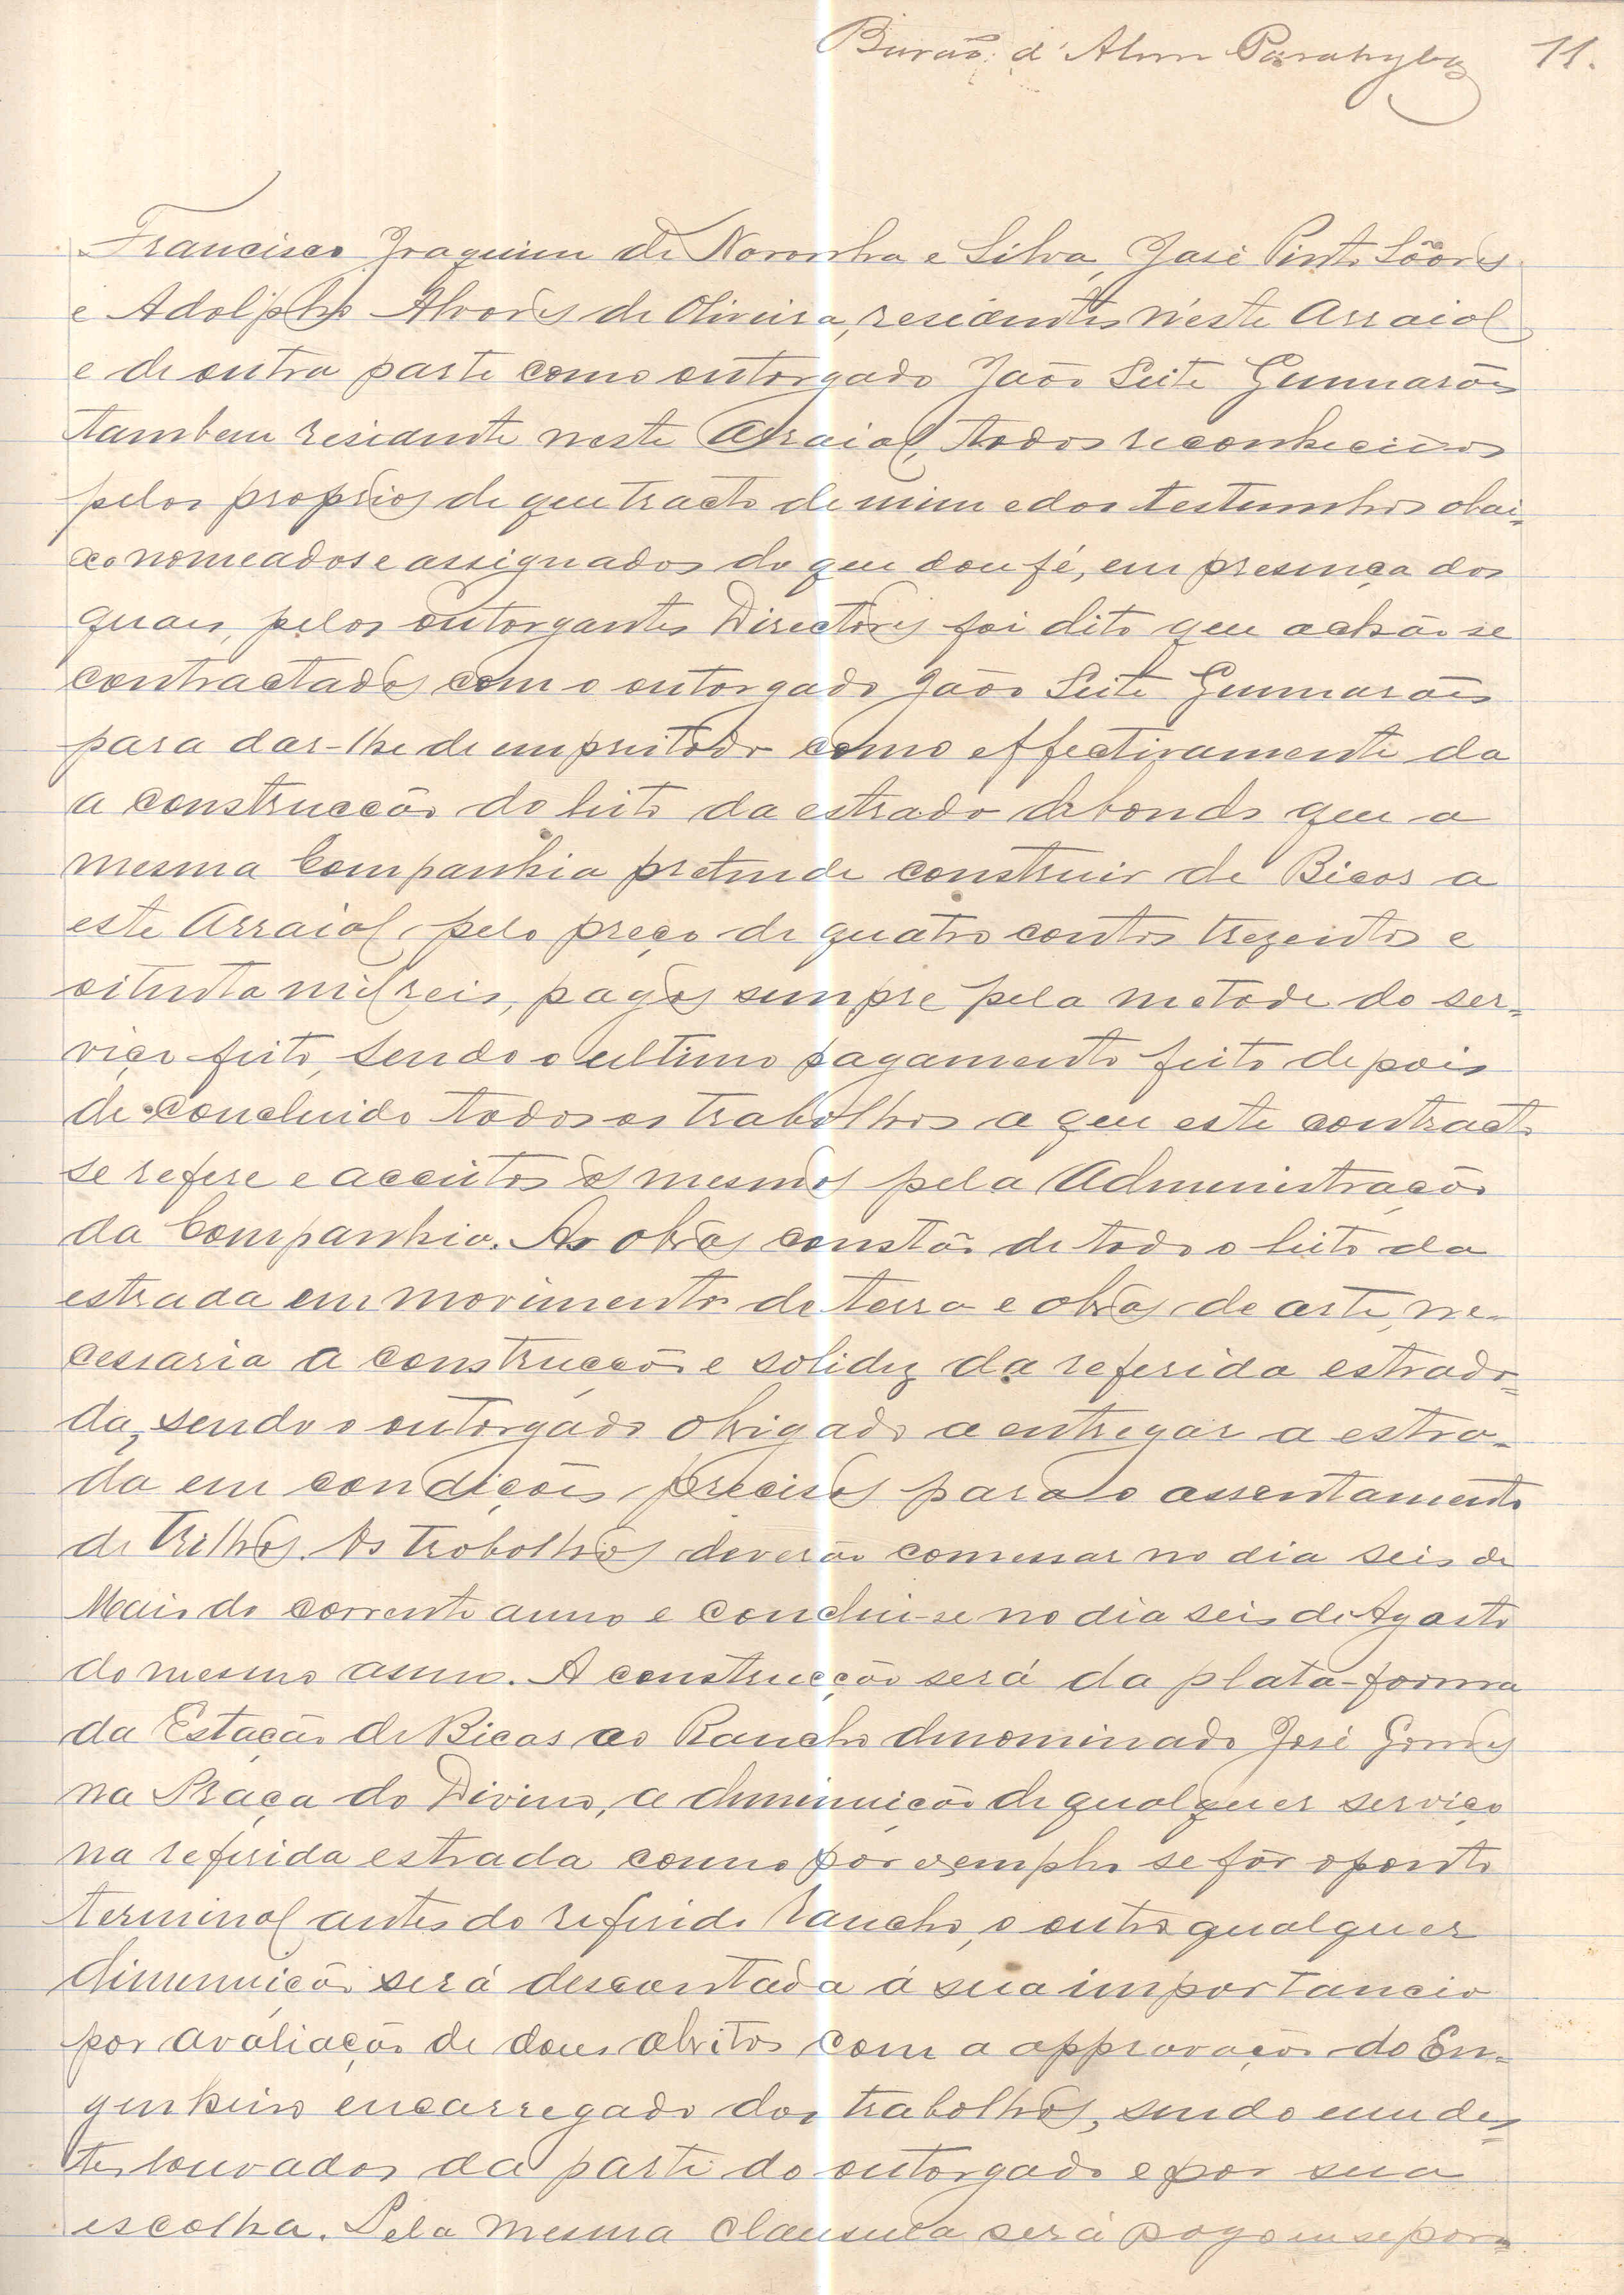 Barão d'Além Parahyba 11.
Francisco Joaquim de Noronha e Silva, José Pinto Sôares
e Adolpho Alvares de Oliveira, residentes n'este Arraial
e de outra parte como outorgado João Leite Gumarães
tambem residente neste Arraial, todos reconhecidos
pelos proprios de que tracto de mim e das testemunhas abai=
xo nomeados e assignados do que dou fé, em presença dos
quaes, pelos outorgantes Directores foi dito que achão se
contractados com o outorgado João Leite Gumarães
para dar-lhe de empreitada como effectivamente da
a construcção do leito da estrada de bonds que a
mesma Companhia pretende construir de Bicas a
este Arraial, pelo preço de quatro contos trezentos e
oitenta mil reis, pagos sempre pela metade do ser=
viço feito, sendo o ultimo pagamento feito depois
de concluido todos os trabalhos a que este contracto
se refere e acceitos os mesmos pela Administração
da Companhia. As obras constão de todo o leito da
estrada em movimento de terra e obras de arte, ne-
cessaria a construcção e solidez da referida estrada=
da, sendo o outorgado obrigado a entregar a estra-
da em condições precisas para o assentamento
de trilhos. Os trabalhos deverão comessar no dia seis de
Maio do corrente anno e conclui-se no dia seis de Agosto
do mesmo anno. A construcção será da plata-forma
da Estação de Bicas ao Rancho denominado José Gomes
na Praça do Divino, a demenuição de qualquer serviço
na referida estrada como por exemplo se fôr o ponto
terminal antes do referido rancho, o outra qualquer
dimenuição será descontada á sua importancia
por avaliação de dous abritos com a approvação do En-
genheiro encarregado dos trabalhos, sendo um des=
tes louvados da parte do outorgado e por sua
escolha. Pela mesma clausula será pago em separa=